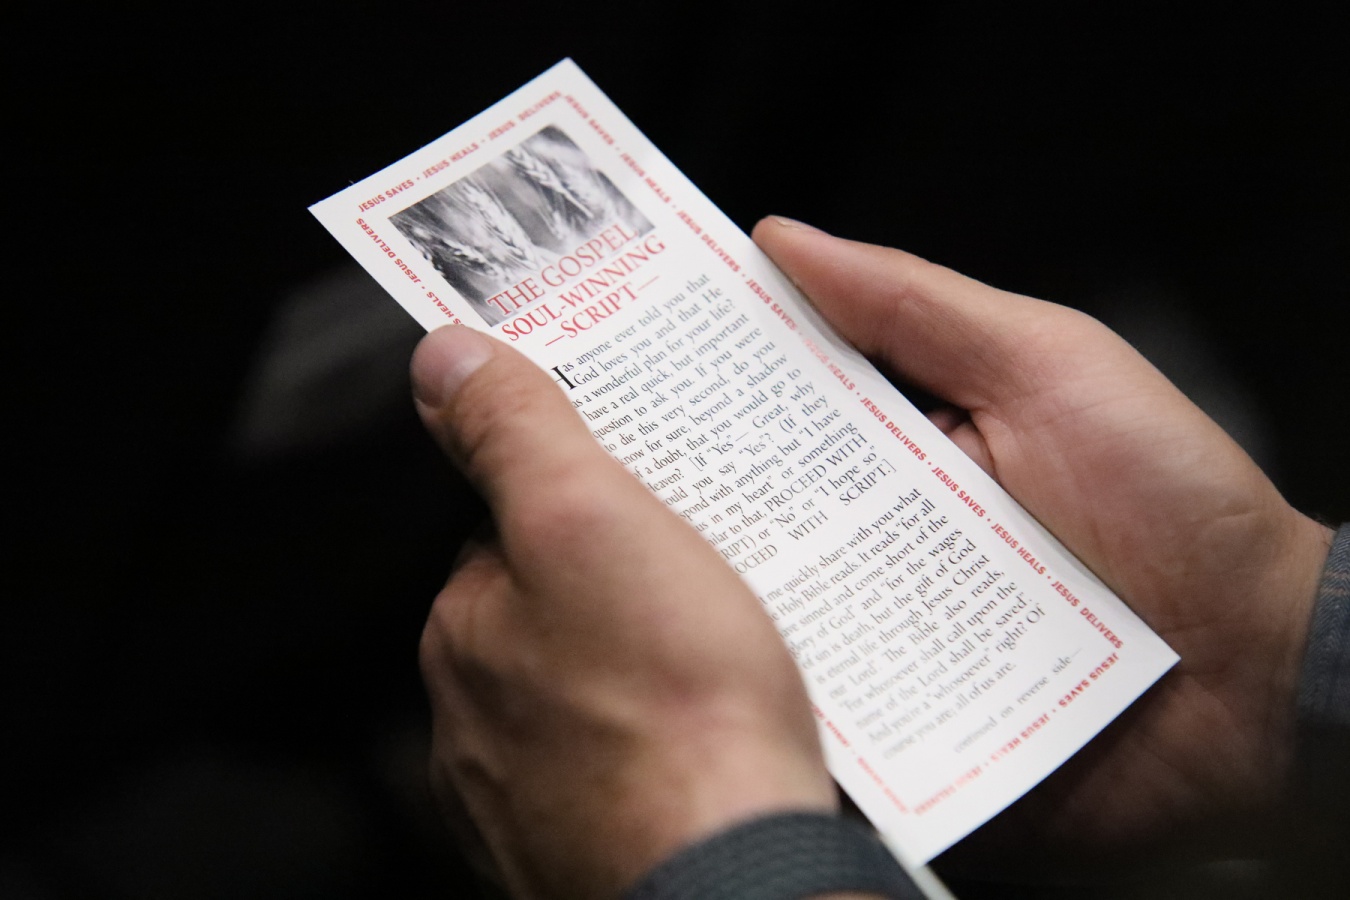 JESUS SAVES • JESUS HEALS • JESUS DELIVERS
JESUS SAVES • JESUS HEALS • JESUS DELIVERS • JESUS SAVES • JESUS HEALS • JESUS DELIVERS • JESUS SAVES • JESUS HEALS • JESUS DELIVERS
THE GOSPEL
SOUL-WINNING
—SCRIPT—
Has anyone ever told you that
God loves you and that He
as a wonderful plan for your life?
have a real quick, but important
question to ask you. If you were
to die this very second, do you
now for sure, beyond a shadow
of a doubt, that you would go to
leaven? [If “Yes”— Great, why
ould you say “Yes”? (If they
spond with anything but “I have
us in my heart” or something
ilar to that, PROCEED WITH
RIPT) or “No” or “I hope so”
OCEED WITH SCRIPT.]
me quickly share with you what
Holy Bible reads. It reads “for all
ave sinned and come short of the
glory of God” and “for the wages
of sin is death, but the gift of God
is eternal life through Jesus Christ
our Lord”. The Bible also reads,
“For whosoever shall call upon the
name of the Lord shall be saved”.
And you’re a “whosoever” right? Of
course you are; all of us are.
continued on reverse side—
JESUS SAVES • JESUS HEALS • JESUS DELIVERS
JESUS DELIVERS • JESUS HEALS